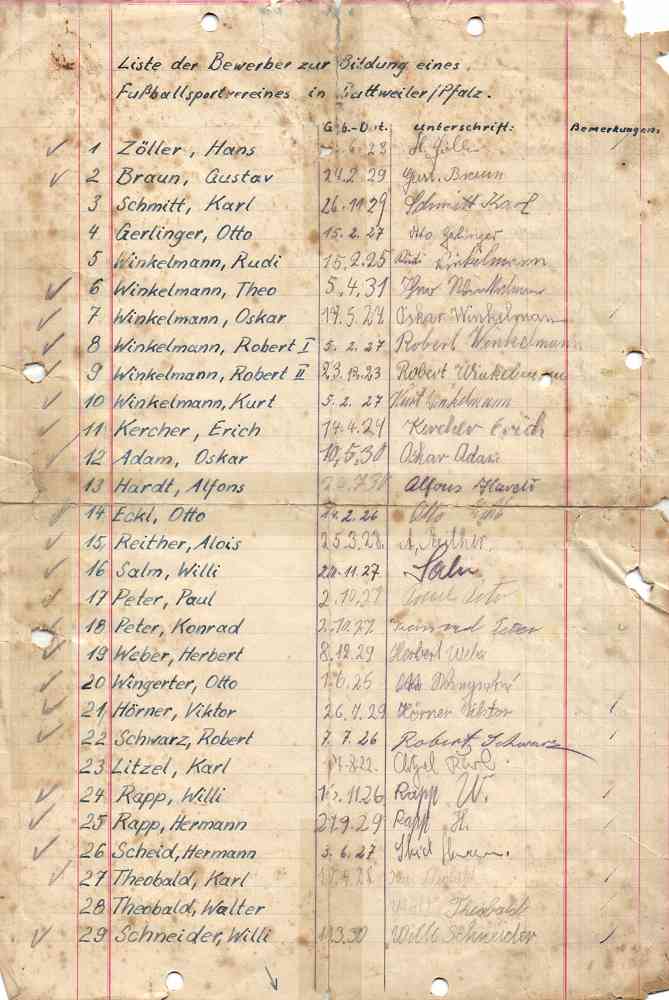 Liste der Bewerber zur Bildung eines
Fußballsportvereines in Guttweiler/Pfalz.
Geb.-Dat. Unterschrift: Bemerkungen.
1 Zöller, Hans 6.28
2 Braun, Gustav 24.2.29 Braun
3 Schmitt, Karl 26.11.29 Schmitt Karl
4 Gerlinger, Otto 15.2.27 Otto Gerlinger
5 Winkelmann, Rudi 15.2.25 Rudi Winkelmann
6 Winkelmann, Theo 5.4.31 Theo Winkelmann
7 Winkelmann, Oskar Oskar Winkelmann
8 Winkelmann, Robert I 5.2.27 Robert Winkelmann
9 Winkelmann, Robert II Robert Winkelmann
10 Winkelmann, Kurt 5.2.27 Kurt Winkelmann
11 Kercher, Erich Kercher Erich
12 Adam, Oskar 10,5,30 Oskar Adam
13 Hardt, Alfons Alfons Hardt
14 Eckl, Otto 2.26 Otto
15, Reither, Alois 25.3.28. A. Reither.
16 Salm, Willi 20.11.27 Salm
17 Peter, Paul 2.10.27
18 Peter, Konrad 2.10.27 Peter
19 Weber, Herbert 8.12.29 Herbert Weber
20 Wingerter, Otto 6.25
21, Hörner, Viktor 26.7.29 Hörner Viktor
22 Schwarz, Robert 7.7.26 Robert Schwarz
23 Litzel, Karl
24 Rapp, Willi 11.26 Rapp W.
25 Rapp, Hermann 27.9.29 Rapp H.
26 Scheid, Hermann 3.6.27
27 Theobald, Karl
28 Theobald, Walter Theobald
29 Schneider, Willi Willi Schneider